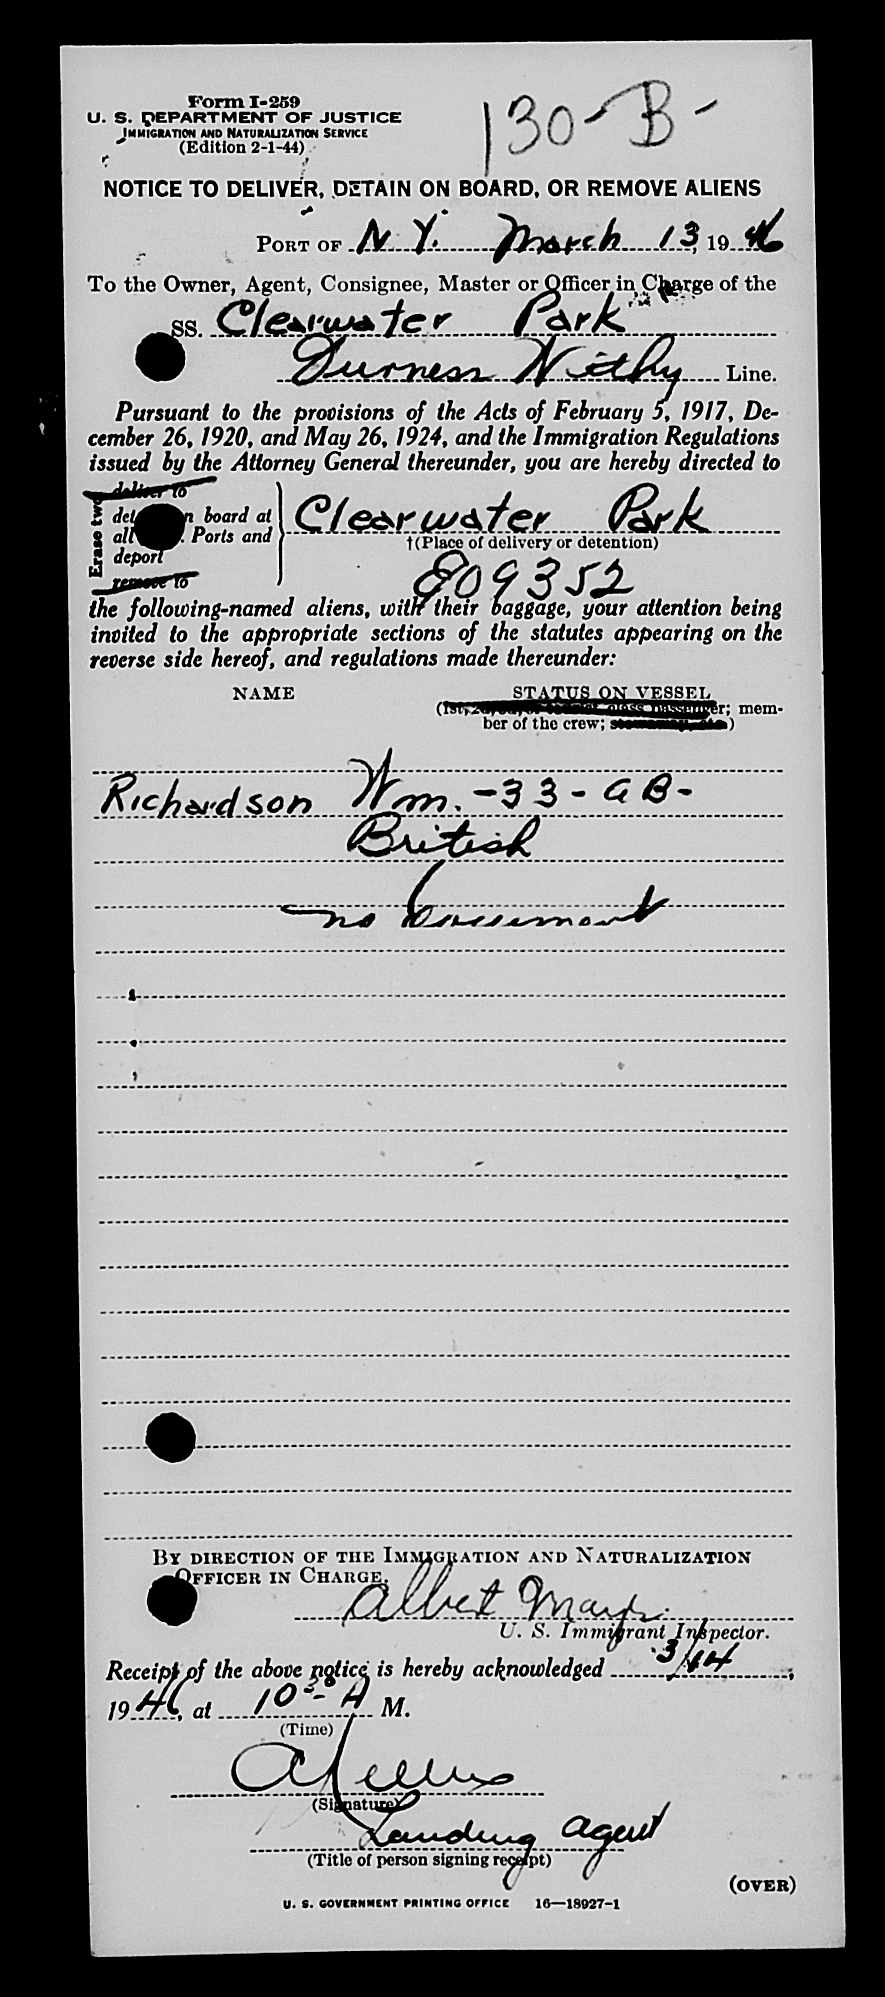 Form I-259
130-B-
U. S. DEPARTMENT OF JUSTICE
IMMIGRATION AND NATURALIZATION SERVICE
(Edition 2-1-44)
NOTICE TO DELIVER, DETAIN ON BOARD, OR REMOVE ALIENS
PORT OF N.Y. March 13, 1946
To the Owner, Agent, Consignee, Master or Officer in Charge of the
SS. Clearwater Park
Furness Withy Line.
Pursuant to the provisions of the Acts of February 5, 1917, De-
cember 26, 1920, and May 26, 1924, and the Immigration Regulations
issued by the Attorney General thereunder, you are hereby directed to
Erase two
deliver to
det n board at
all . Ports and
deport
remove to
Clearwater Park
†(Place of delivery or detention)
E09352
the following-named aliens, with their baggage, your attention being
invited to the appropriate sections of the statutes appearing on the
reverse side hereof, and regulations made thereunder:
NAME STATUS ON VESSEL
(1st, 2d, class passenger; mem-
ber of the crew; )
Richardson Wm. - 33 - AB -
British
no document
BY DIRECTION OF THE IMMIGRATION AND NATURALIZATION
OFFICER IN CHARGE.
Albert
U. S. Immigrant Inspector.
Receipt of the above notice is hereby acknowledged 3/14,
1946, at 10 30 A M.
(Time)
(Signature)
Landing Agent
(Title of person signing receipt)
(OVER)
U. S. GOVERNMENT PRINTING OFFICE 16—18927-1